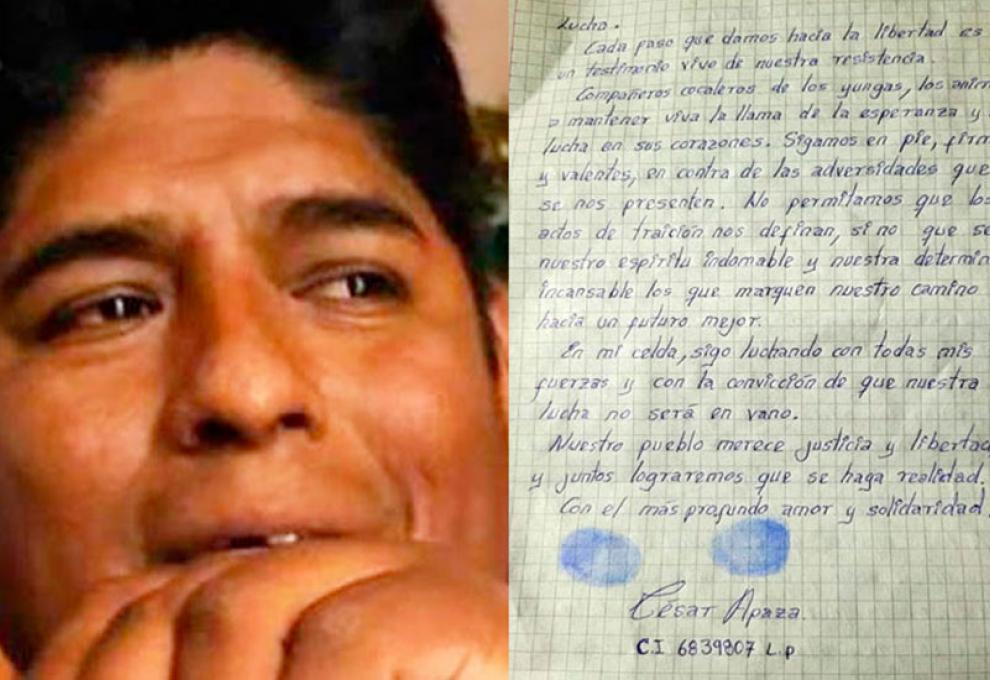 lucha.
Cada paso que damos hacia la libertad es
un testimonio vivo de nuestra resistencia.
Compañeros cocaleros de los yungas, los anim
a mantener viva la llama de la esperanza y
lucha en sus corazones. Sigamos en pie, firm
y valientes, en contra de las adversidades que
se nos presenten. No permitamos que los
actos de traición nos definan, si no que se
nuestro espíritu indomable y nuestra determin
incansable los que marquen nuestro camino
hacia un futuro mejor.
En mi celda, sigo luchando con todas mis
fuerzas y con la convicción de que nuestra
lucha no será en vano.
Nuestro pueblo merece justicia y libertad
y juntos lograremos que se haga realidad.
Con el más profundo amor y solidaridad.
César Apaza.
C.I 6839807 L.p